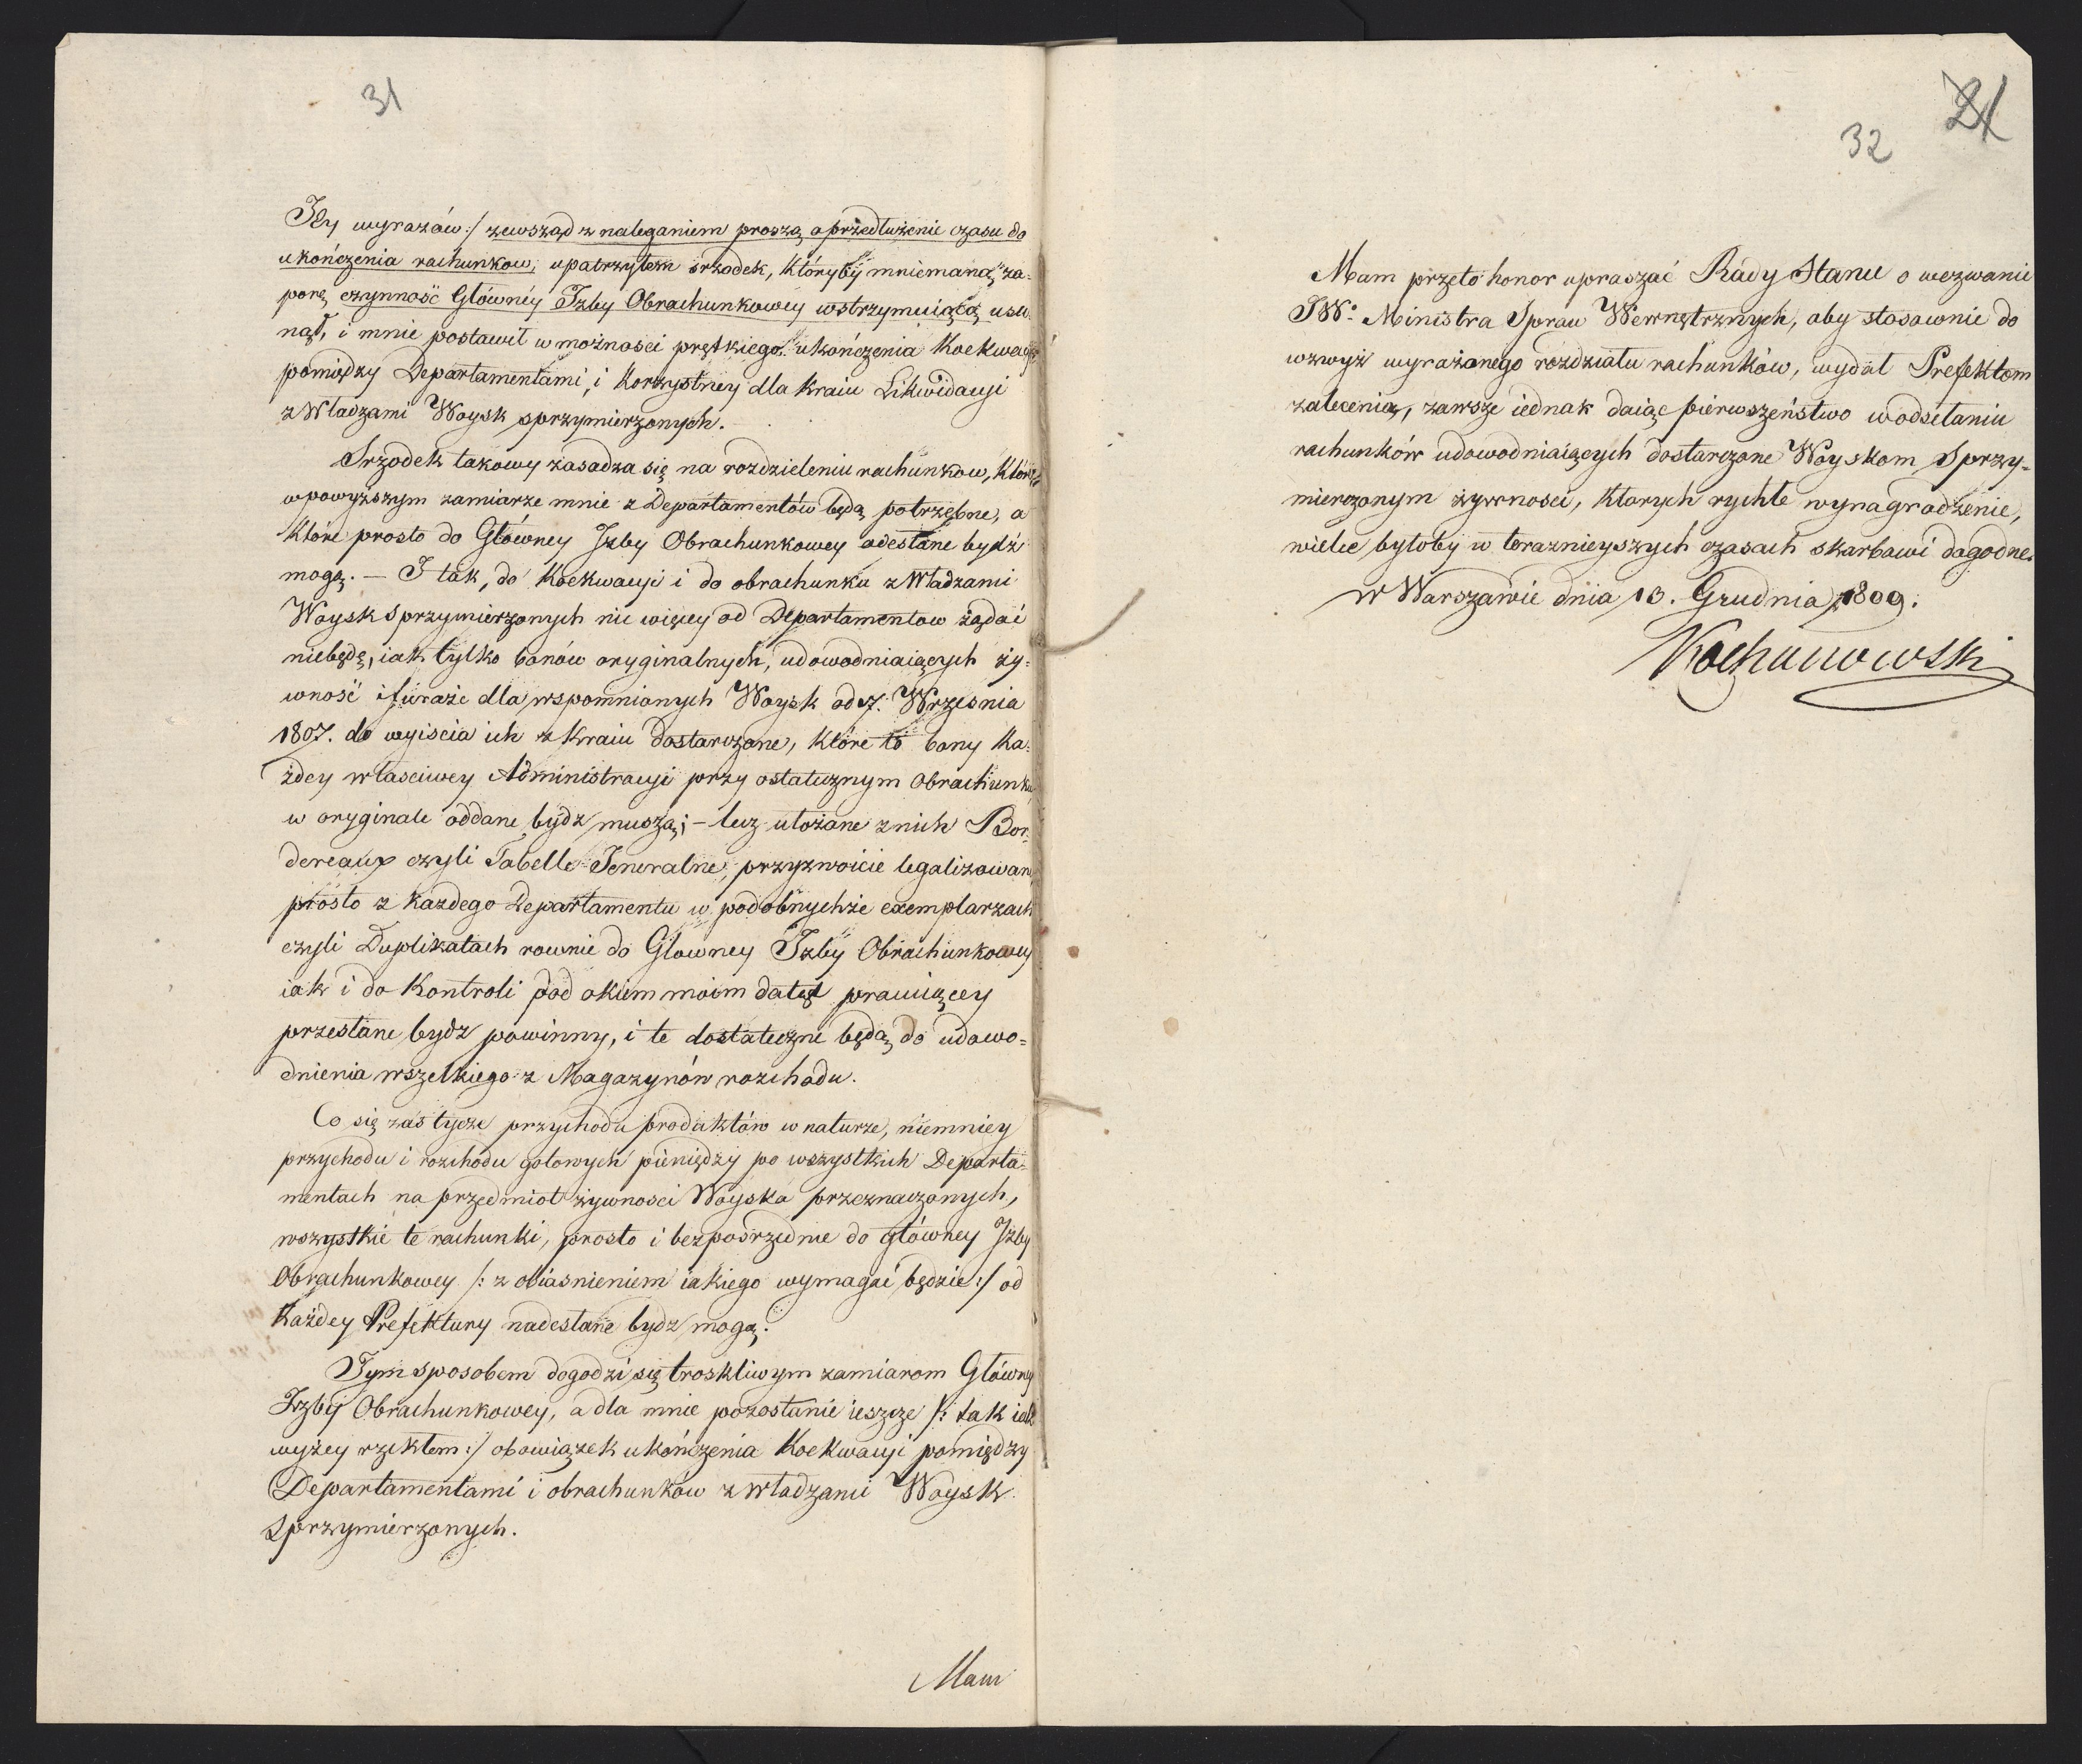 31
Jey wyrazów :/ zewsząd z naleganiem proszą o przedłużenie czasu do
ukończenia rachunkow, upatrzyłem srzodek, któryby mniemaną za-
porę czynność Główney Izby Obrachunkowey wstrzymuiącą usu-
nął, i mnie postawił w możnosci prętkiego ukończenia Koekwacyi
pomiędzy Departamentami, i korzystney dla kraiu Likwidacyi
z Władzami Woysk sprzymierzonych.
Srzodek takowy zasadza się na rozdzieleniu rachunkow, które
w powyższym zamiarze mnie z Departamentów będą potrzebne, a
które prosto do Główney Izby Obrachunkowey odesłane bydź
mogą. — I tak, do Koekwacyi i do obrachunku z Władzami
Woysk Sprzymierzonych nic więcey od Departamentow żądać
niebędę, iak tylko bonów oryginalnych, udowodniaiących ży-
wność i furaże dla wspomnionych Woysk od 7. Wrzesnia
1807. do wyiscia ich z Kraiu dostarczone, które to bony Ka-
żdey własciwey Administracyi przy ostatecznym Obrachunku
w oryginale oddane bydz muszą; – lecz ułożone z nich Bor-
dereaux czyli Tabelle Jeneralne, przyzwoicie legalizowane
prosto z każdego Departamentu w podobnychże exemplarzach
czyli Duplikatach rownie do Glowney Izby Obrachunkowey
iak i do Kontroli pod okiem moim dotąd pracuiącey
przesłane bydz powinny, i te dostateczne będą do udowo-
dnienia wszelkiego z Magazynów rozchodu.
Co się zas tycze przychodu produktów w naturze, niemniey
przychodu i rozchodu gotowych pieniędzy po wszystkich Departa-
mentach na przedmiot żywnosci Woyska przeznaczonych,
wszystkie te rachunki, prosto i bezposrzednie do główney Izby
Obrachunkowey /: z obiasnieniem iakiego wymagać będzie :/ od
Każdey Prefektury nadesłane bydz mogą.
Tym sposobem dogodzi się troskliwym zamiarom Główney
Izby Obrachunkowey, a dla mnie pozostanie ieszcze /: tak iak
wyżey rzekłem :/ obowiązek ukończenia Koekwacyi pomiędzy
Departamentami i obrachunków z Władzami Woysk
Sprzymierzonych.
Mam
32
Mam przeto honor upraszać Rády Stanu o wezwanie
JW. Ministra Spraw Wewnętrznych, aby stosownie do
wzwyż wyrażonego rozdziału rachunków, wydał Prefektom
zalecenia, zawsze iednak daiąc pierwszeństwo w odsełaniu
rachunków udowodniaiących dostarczone Woyskom Sprzy-
mierzonym żywnosci, ktorych rychłe wynagrodzenie,
wielce byłoby w teraznieyszych czasach skarbowi dogodne.
w Warszawie dnia 13. Grudnia 1809.
Kochanowski